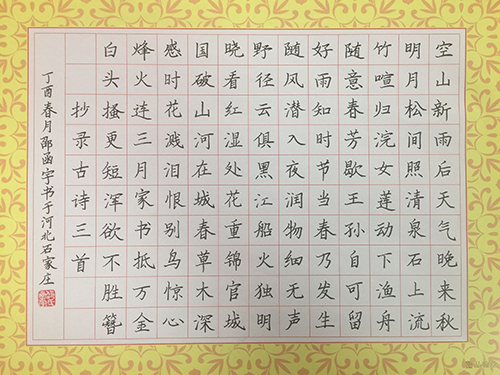 空山新雨后天气晚来秋
明月松间照清泉石上流
竹喧归浣女莲动下渔舟
随意春芳歇王孙自可留
好雨知时节当春乃发生
随风潜入夜润物细无声
野径云俱黑江船火独明
晓看红湿处花重锦官城
国破山河在城春草木深
感时花溅泪恨别鸟惊心
烽火连三月家书抵万金
白头搔更短浑欲不胜簪
抄录古诗三首
丁酉春月邵函宇书于河北石家庄